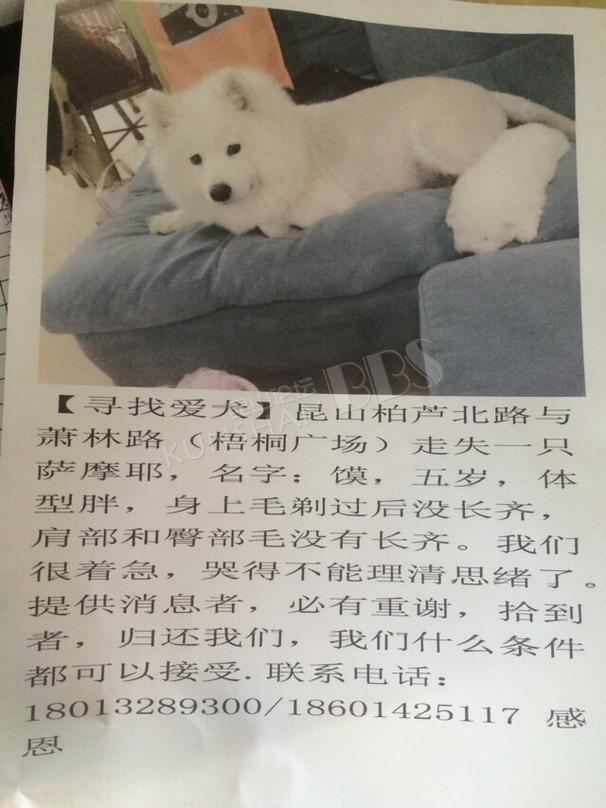 【寻找爱犬】昆山柏芦北路与
萧林路（梧桐广场）走失一只
萨摩耶，名字：馍，五岁，体
型胖，身上毛剃过后没长齐，
肩部和臀部毛没有长齐。我们
很着急，哭得不能理清思绪了。
提供消息者，必有重谢，拾到
者，归还我们，我们什么条件
都可以接受.联系电话：
18013289300/18601425117 感
恩
BBS